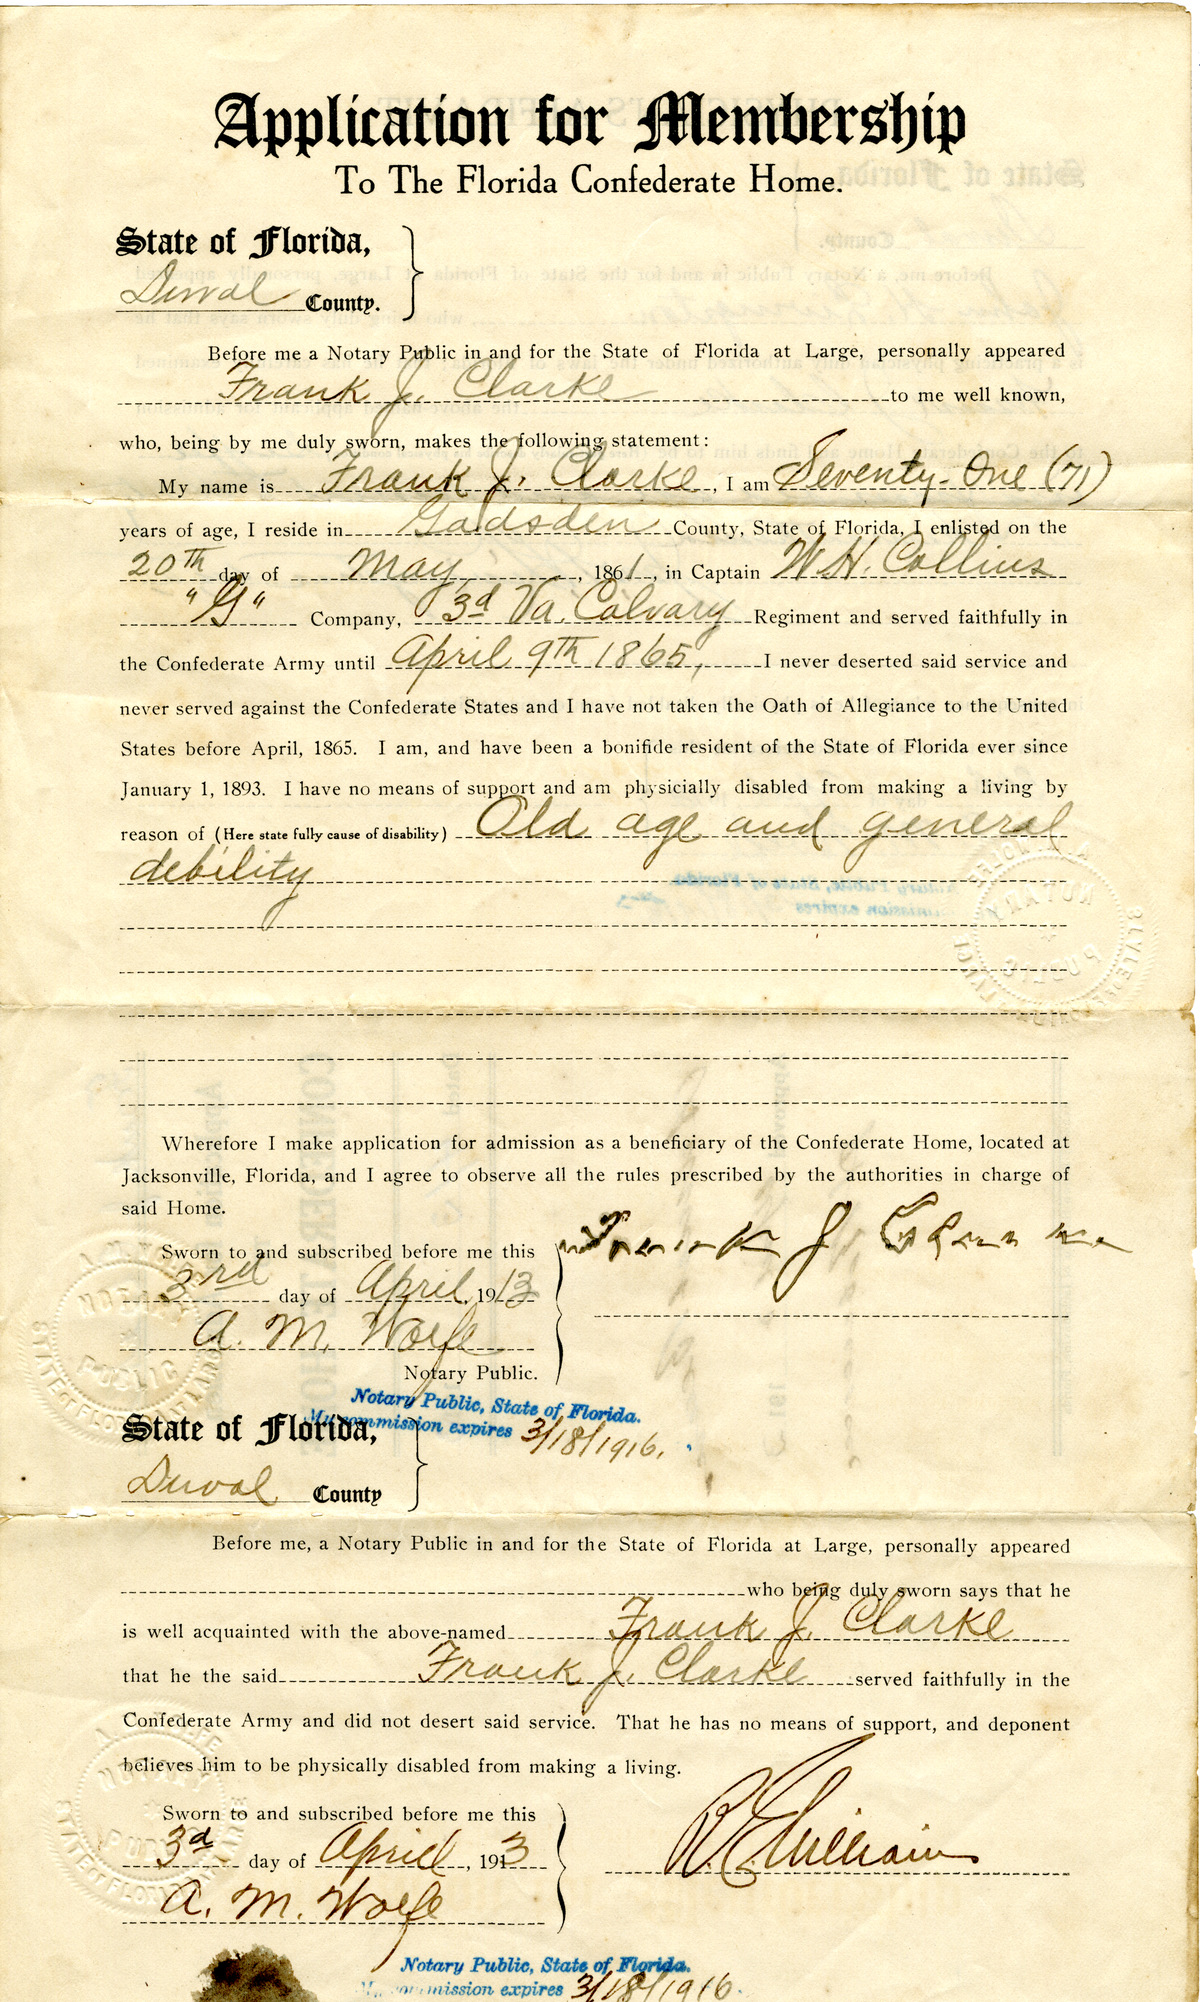 Application for Membership
To The Florida Confederate Home.
State of Florida,
Duval County.
Before me a Notary Public in and for the State of Florida at Large, personally appeared
Frank J. Clarke to me well known,
who, being by me duly sworn, makes the following statement:
My name is Frank J. Clarke, I am Seventy-One (71)
years of age, I reside in Gadsden County, State of Florida, I enlisted on the
20th day of May, 1861, in Captain W. H. Collins
"G" Company, 3d Va. Calvary Regiment and served faithfully in
the Confederate Army until April 9th 1865, I never deserted said service and
never served against the Confederate States and I have not taken the Oath of Allegiance to the United
States before April, 1865. I am, and have been a bonifide resident of the State of Florida ever since
January 1, 1893. I have no means of support and am physicially disabled from making a living by
reason of (Here state fully cause of disability) Old age and general
debility
Wherefore I make application for admission as a beneficiary of the Confederate Home, located at
Jacksonville, Florida, and I agree to observe all the rules prescribed by the authorities in charge of
said Home.
Sworn to and subscribed before me this
3rd day of April, 1913
Frank J Clarke
A. M. Wolfe
Notary Public.
Notary Public, State of Florida.
My commission expires 3/18/1916.
State of Florida,
Duval County
Before me, a Notary Public in and for the State of Florida at Large, personally appeared
who being duly sworn says that he
is well acquainted with the above-named Frank J. Clarke
that he the said Frank J. Clarke served faithfully in the
Confederate Army and did not desert said service. That he has no means of support, and deponent
believes him to be physically disabled from making a living.
Sworn to and subscribed before me this
3d day of April, 1913
A. M. Wolfe
Notary Public, State of Florida.
My commission expires 3/18/1916.